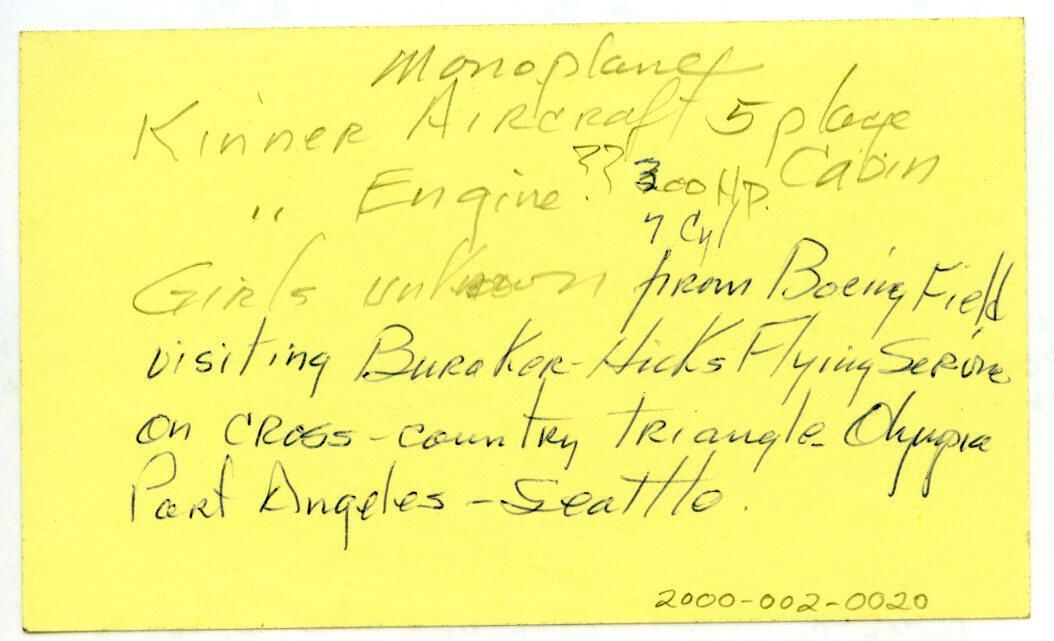 Monoplane
Kinner Aircraft 5 place
Cabin
" Engine ?? 300 H.P.
7 Cyl
Girls unknown from Boeing Field
visiting Buraker-Hicks Flying Service
on cross-country triangle Olympia
Port Angeles - Seattle.
2000-002-0020